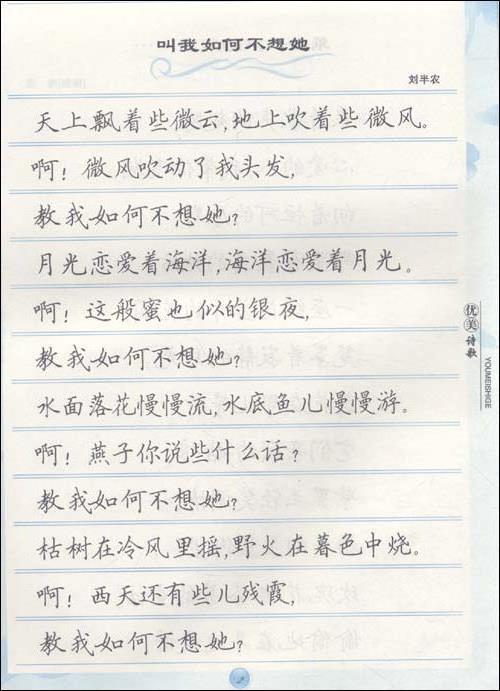 叫我如何不想她
刘半农
天上飘着些微云,地上吹着些微风。
啊!微风吹动了我头发,
教我如何不想她?
月光恋爱着海洋,海洋恋爱着月光。
啊!这般蜜也似的银夜,
教我如何不想她?
水面落花慢慢流,水底鱼儿慢慢游。
啊!燕子你说些什么话?
教我如何不想她?
枯树在冷风里摇,野火在暮色中烧。
啊!西天还有些儿残霞,
教我如何不想她?
优美诗歌
YOUMEISHIGE
2